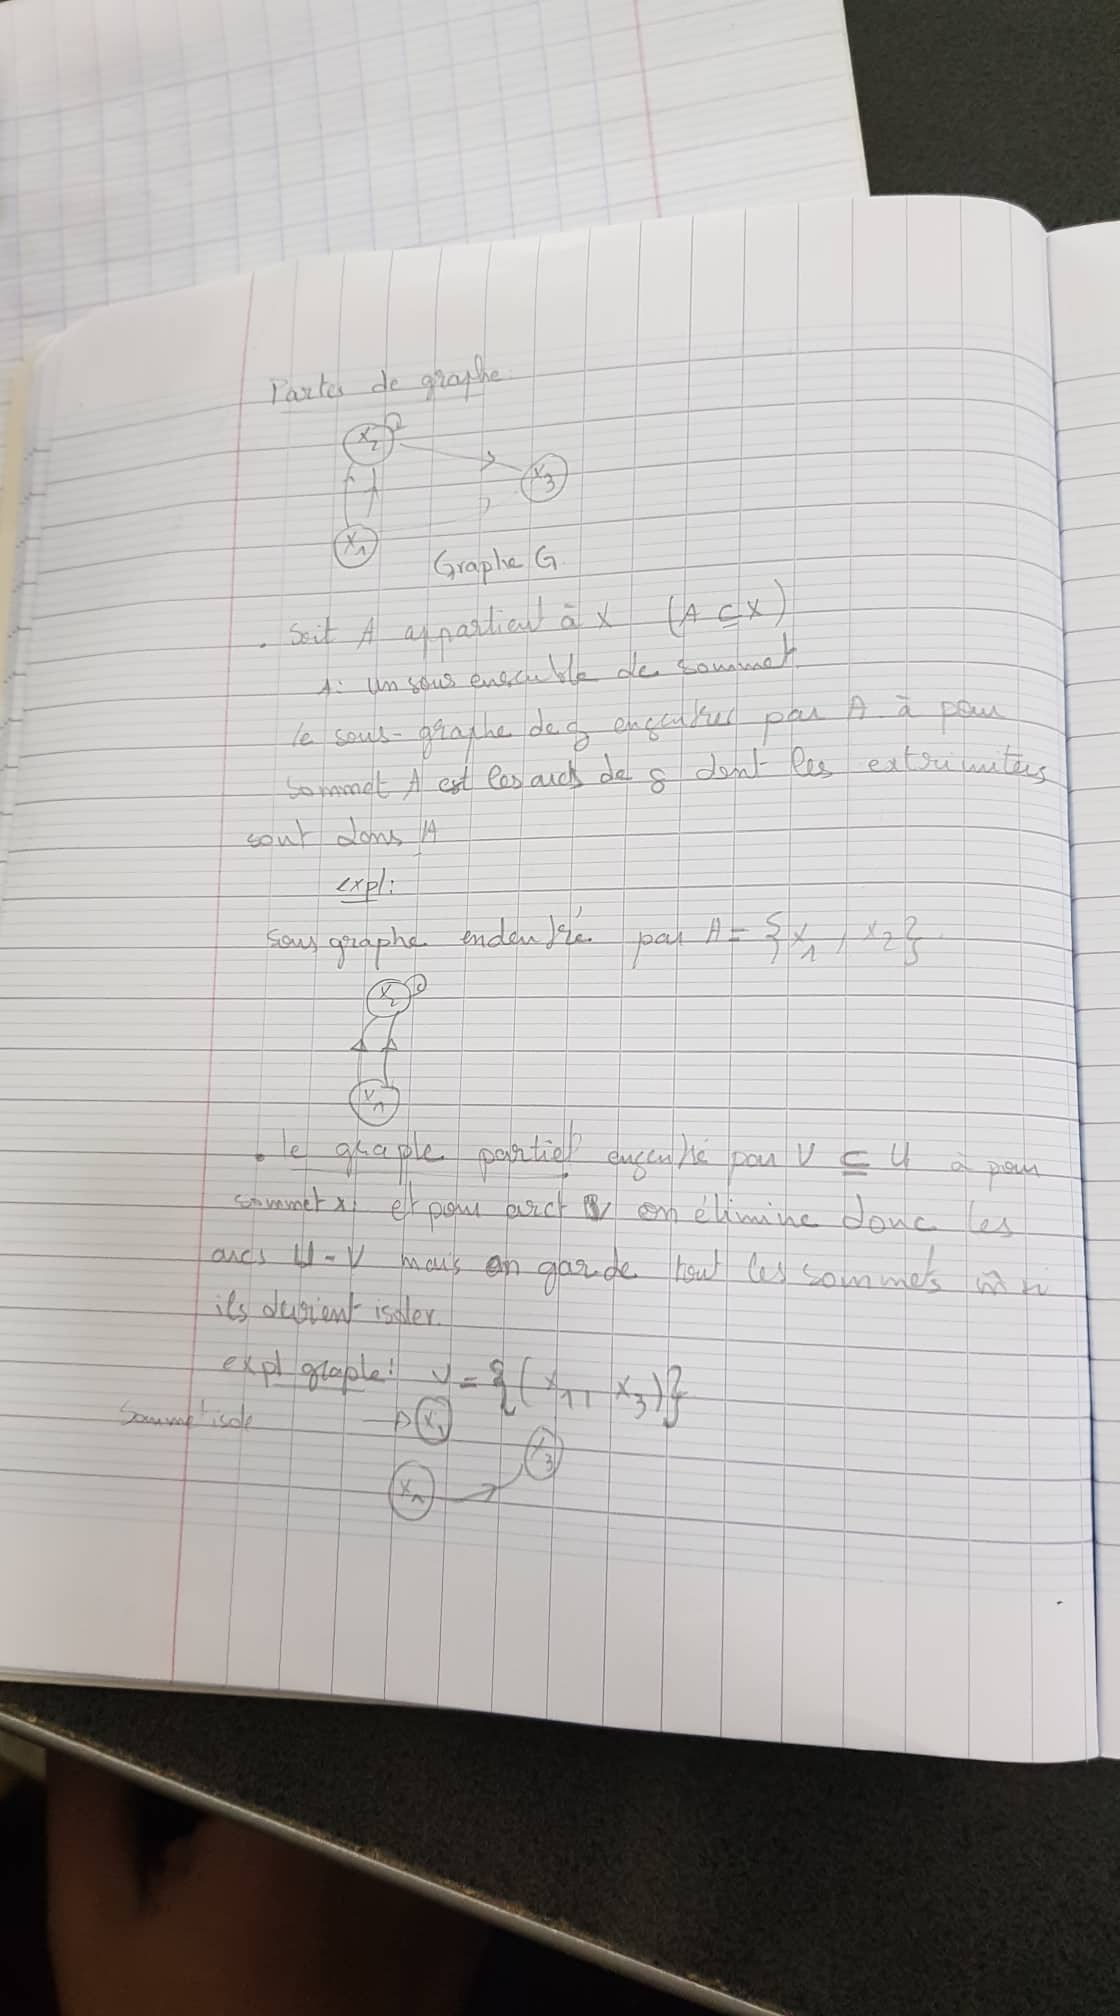 Parties de graphe
x2
x3
x1
Graphe G
. Soit A appartient à X (A ⊆ X)
A: un sous ensemble de sommet
le sous-graphe de g par A à pour
sommet A est les arcs de g dont les extrimitées
sont dans A
expl:
Sous graphe endendré par A = {x1, x2}
x2
x1
. le graphe partiel par V ⊆ U à pour
sommet x, et pour arct V on élimine donc les
arcs U-V mais on garde tout les sommets
ils devient isoler.
expl graphe: V = {(x1, x3)}
Sommet isole → x
x3
x1